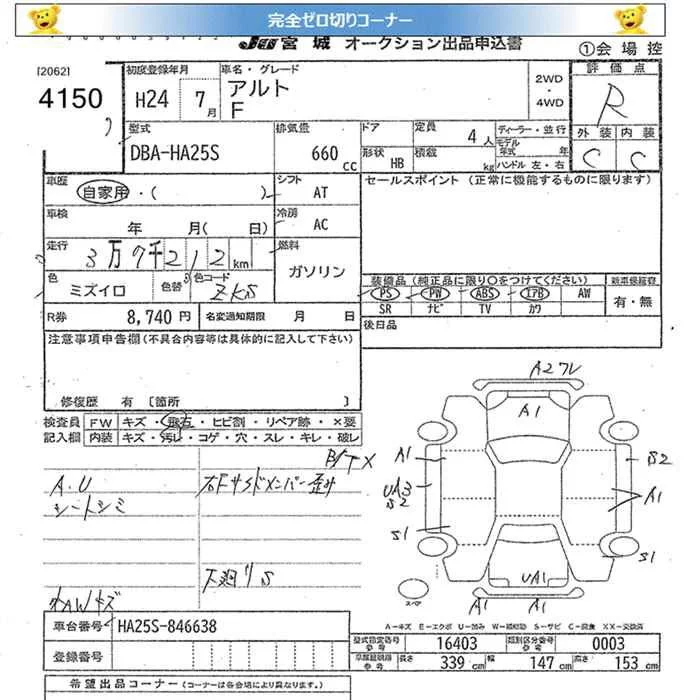 完全ゼロ切りコーナー
JU 宮城 オークション出品申込書
①会場控
[2062]
4150
初度登録年月
H24 7月
車名・グレード
アルト
F
2WD
・
4WD
評価点
R
外装 内装
C C
型式
DBA-HA25S
排気量
660 cc
ドア
形状 HB
定員 4人
積載 kg
ディーラー・並行
モデル年式 年
ハンドル 左・右
車歴
自家用・( )
シフト AT
セールスポイント (正常に機能するものに限ります)
車検
年 月( 日)
冷房 AC
走行
3万7千212km
燃料
ガソリン
色
ミズイロ
色替
色コード
ZKS
装備品 (純正品に限り〇をつけてください)
PS PW ABS エアB AW
SR ナビ TV カワ
新車保証書
有・無
R券 8,740円
名変通知期限 月 日
後日品
注意事項申告欄(不具合内容等は具体的に記入して下さい)
修復歴 有 [箇所 ]
検査員記入欄
FW キズ・飛石・ヒビ割・リペア跡・×要
内装 キズ・汚れ・コゲ・穴・スレ・キレ・破レ
A.U
シートシミ
右Fサイドメンバー歪み
下廻りS
A2 ワレ
A1
A1
UA3
S2
S1
S2
A1
S1
UA1
A1 A1
スペア
A-キズ E-エクボ U-凹み W-補修跡 S-サビ C-腐食 XX-交換済
車台番号 HA25S-846638
登録番号
型式指定番号 参考 16403
類別区分番号 参考 0003
長さ 339cm 幅 147cm 高さ 153cm
希望出品コーナー (コーナーは各会場により異なります。)